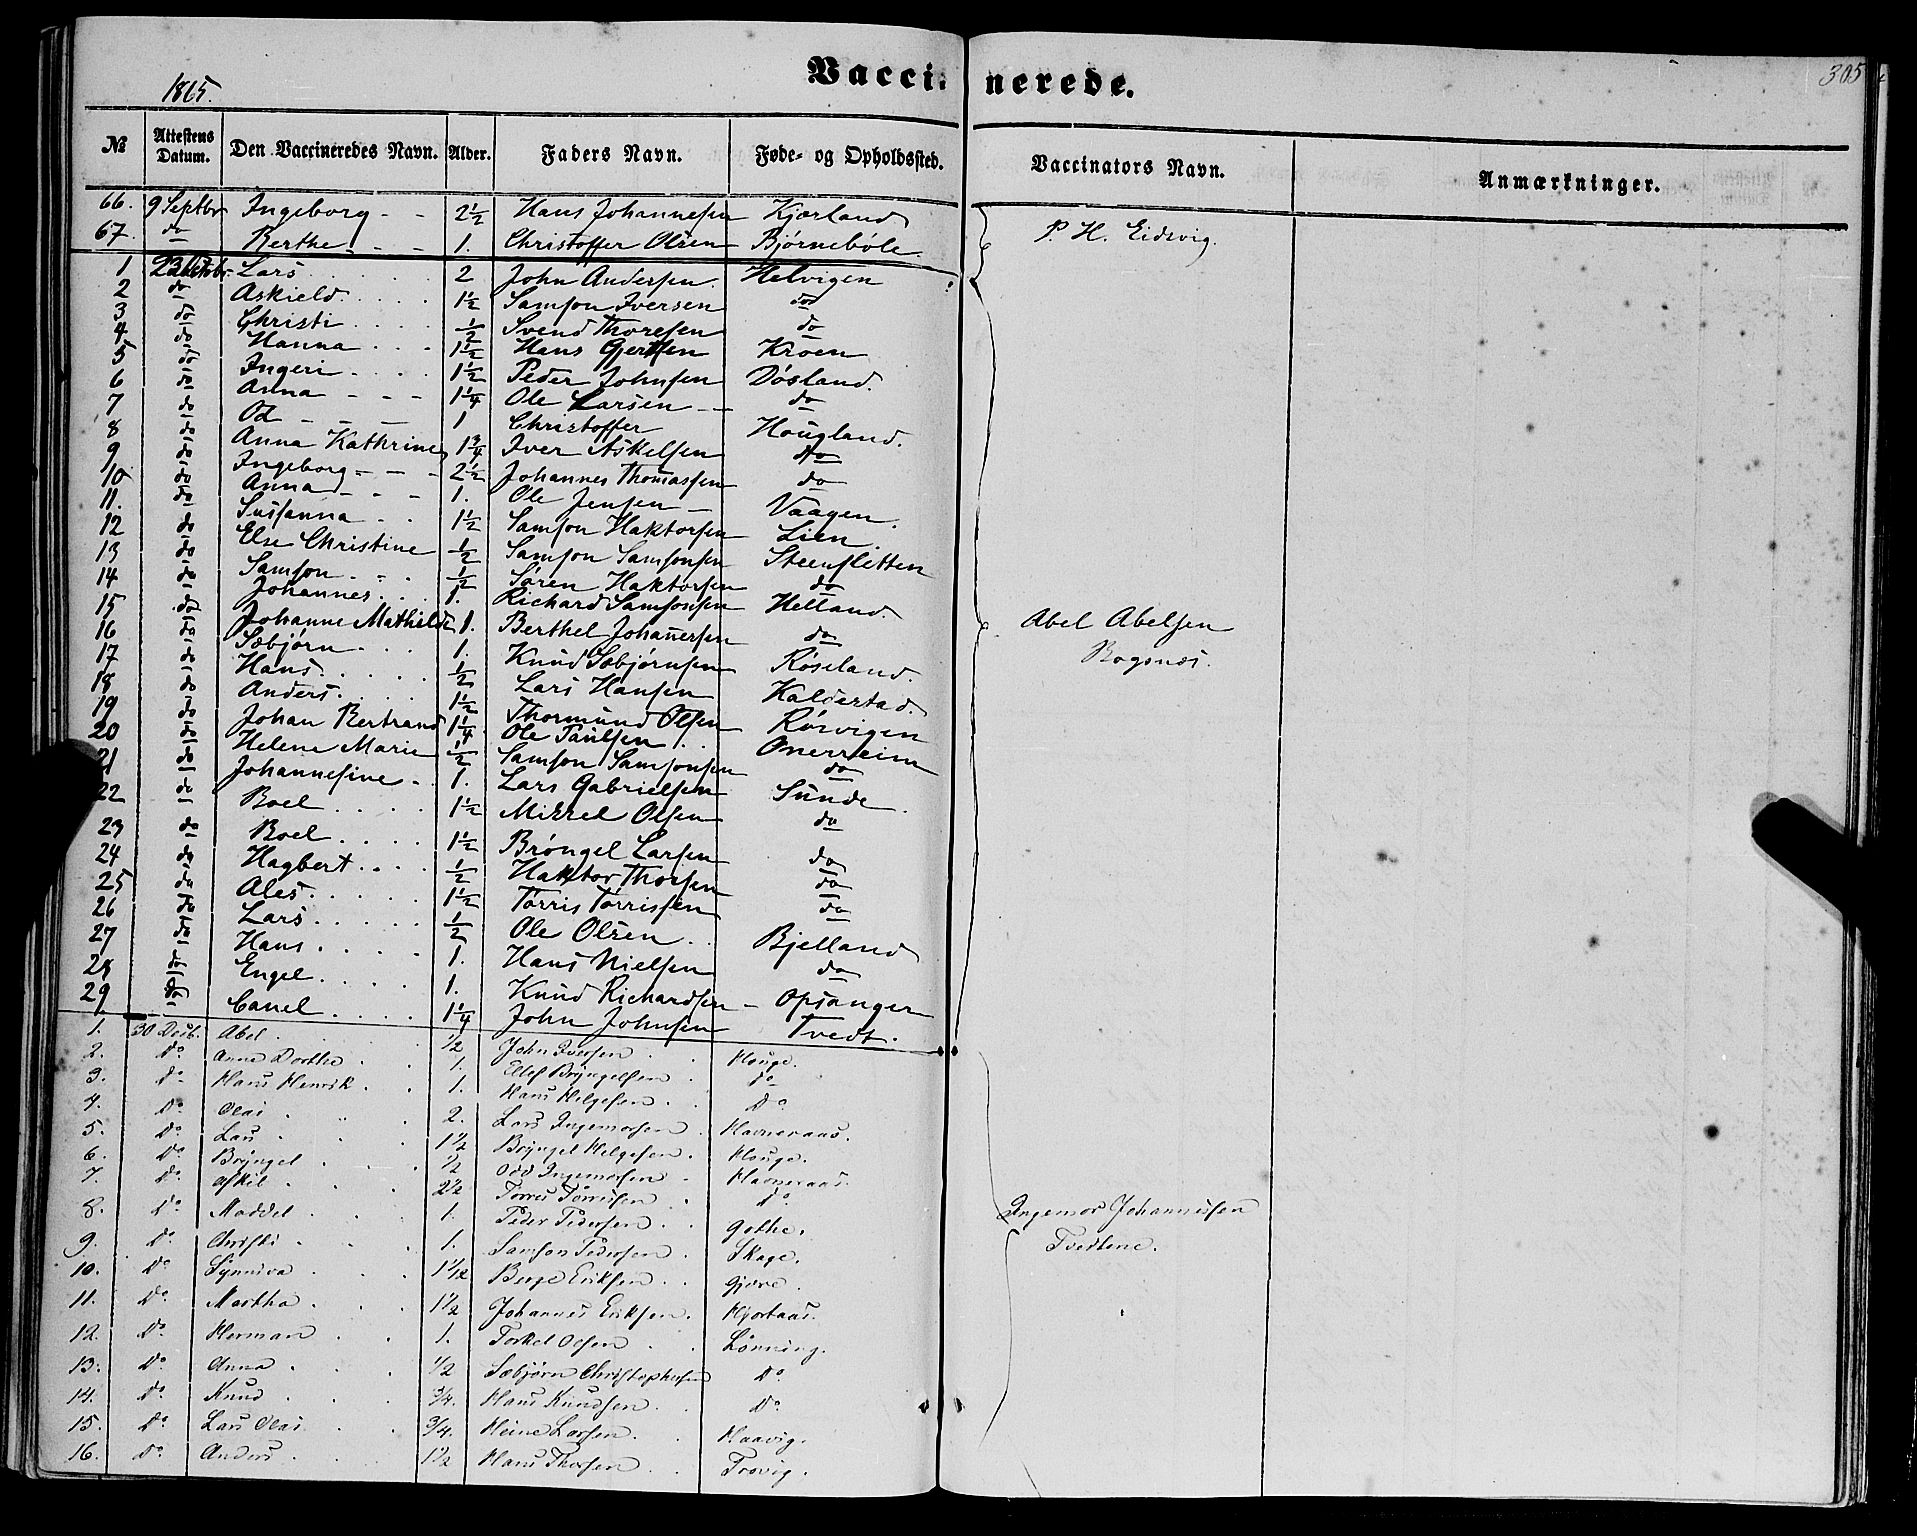 Vaccinerede.
1865.
305
№ Attestens Datum. Den Vaccineredes Navn. Alder. Faders Navn. Føde- og Opholdssted. Vaccinators Navn. Anmærkninger.
66. 9 Septbr Ingeborg - - 2 1/2 Hans Johannesen Kjærland
67. do Berthe - - 1. Christoffer Olsen Bjørnebøle P. H. Eidsvig.
1 Lars 2 John Andersen. Helvigen
2 do Askield. 1 1/2 Samson Iversen do
3 do Christi 1/2 Svend Thoresen do
4 do Hanna 1 1/2 Hans Gjertsen Kroen
5 do Ingeri 1 1/2 Peder Johnsen Døsland.
6 do Anna - - - 1 1/4 Ole Larsen - - do
7 do Od - - - 1 Christoffer Hougland.
8 do Anna Kathrine 1 3/4 Iver Askelsen do
9 do Ingeborg - - - 2 1/2 Johannes Thomassen do
10 do Anna - - - 1. Ole Jensen - Vaagen.
11. do Sussanna 1 1/2 Samson Haktorsen Lien
12 do Else Christine 1/2 Samson Samsonsen Steensletten
13 do Samson 1/2 Søren Haktorsen do
14 do Johannes. 1. Richard Samsonsen Helland.
15 do Johanne Mathilde 1. Berthel Johanessen do Abel Abelsen
16 do Sæbjørn 1. Knud Sæbjørnsen Røseland. Bogsnæs.
17 do Hans 1/2 Lars Hansen Kaldestad.
18 do Anders. 1 1/2 Thormund Olsen Røsvigen
19 do Johan Bertrand 1 1/4 Ole Paulsen Onerreim
20 do Helene Marie 1/2 Samson Samsonsen do
21 do Johannesine - 1. Lars Gabrielsen Sunde.
22 do Boel 1 1/2 Mikkel Olsen do
23 do Boel 1 1/2 Brøngel Larsen do
24 do Hagbert 1/2 Haktor Thorsen do
25 do Ales. 1 1/2 Tørris Tørrissen do
26 do Lars 1/2 Ole Olsen Bjelland
27 do Hans 1. Hans Nielsen do
28 do Engel. 1. Knud Richardsen - Opsanger
29 do Canel 1 1/4 John Johnsen Tvedt.
1. 30 Desb. Abel 1/2 John Iversen Houge.
2. Do Anne Dorthe 1. Ellef Bryngelsen do
3. Do Hans Henrik 1. Hans Helgesen Do
4. Do Olai 2. Lars Ingemorsen Havneraas.
5. Do Lars 1 1/2 Bryngel Helgesen. Houge.
6. Do Bryngel 1/2 Odd Ingemorsen Havneraas.
7. Do Askil 2 1/2 Tørres Tørrissen Do
8. Do Maddel 1. Peder Pedersen Gothe. Ingemor Johannessen
9. Do Christi 1. Samson Pedersen Skage. Tveitene.
10. Do Synniva 1 1/12 Berge Eriksen Gjære.
11. Do Martha 1 1/2 Johannes Eriksen. Hjortaas.
12. Do Herman 1. Torkel Olsen Lønning.
13. Do Anna 1/2 Sæbjørn Christophersen Do
14. Do Knud 3/4. Hans Knudsen Do
15. Do Lars Olai 3/4. Heine Larsen. Haavig.
16. Do Anders 1 1/2 Hans Thorsen Trovig.